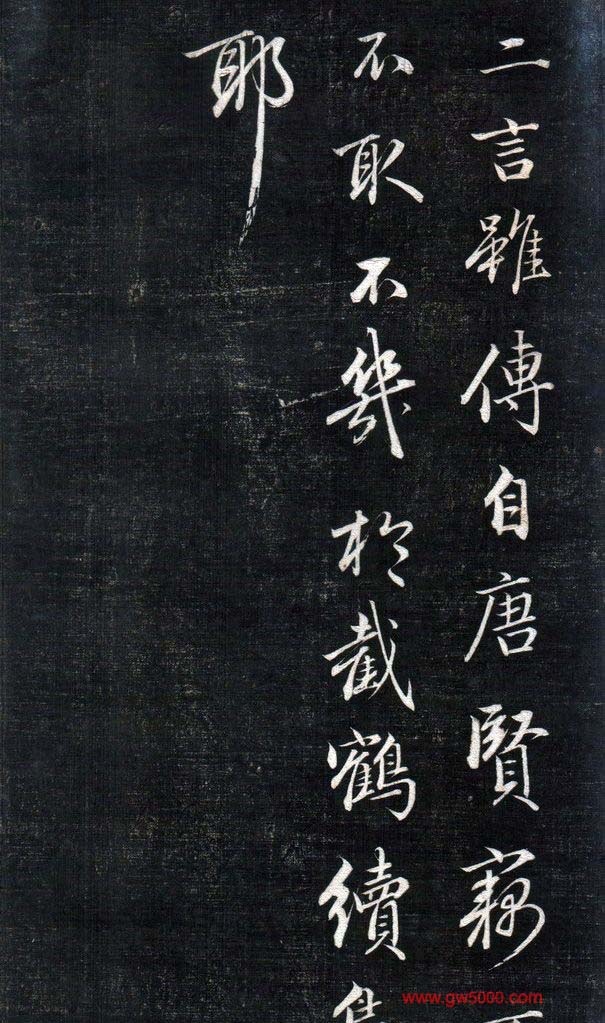 二言雖傳自唐賢竊
不取不幾於截鶴續
耶
www.gw5000.com